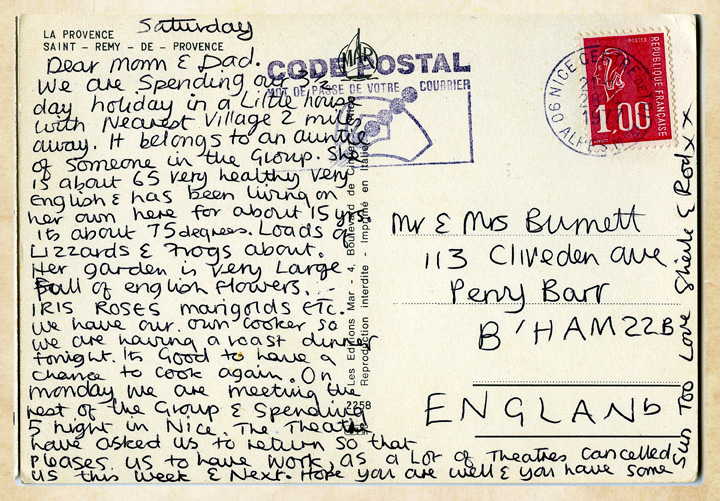 LA PROVENCE
SAINT - REMY - DE - PROVENCE
Saturday
Dear Mom & Dad.
We are Spending our 3½
day holiday in a Little house
with Nearest Village 2 miles
away. It belongs to an auntie
of Someone in the Group. She
is about 65 very healthy very
English & has been living on
her own here for about 15 yrs
its about 75 degrees. Loads of
Lizzards & Frogs about.
Her garden is very Large
Full of english flowers.
IRIS ROSES marigolds ETC.
we have our own cooker so
we are having a roast dinner
tonight. Its Good to have a
chance to cook again. On
monday we are meeting the
rest of the Group & Spending
5 night in Nice. The Theatre
have asked us to return so that
pleases us to have work, as a Lot of Theatres cancelled
us this week & Next. Hope you are well & you have some
Sun Too Love Sherle & Rod x x
MAR
CODE POSTAL
MOT DE PASSE DE VOTRE COURRIER
06 NICE
REPUBLIQUE FRANÇAISE
POSTES
1,00
Les Editions Mar - 4, Boulevard de
Reproduction Interdite - Imprimé en Italie
2258
Mr & Mrs Burnett
113 Cliveden ave.
Perry Barr
B'HAM 22B
ENGLAND